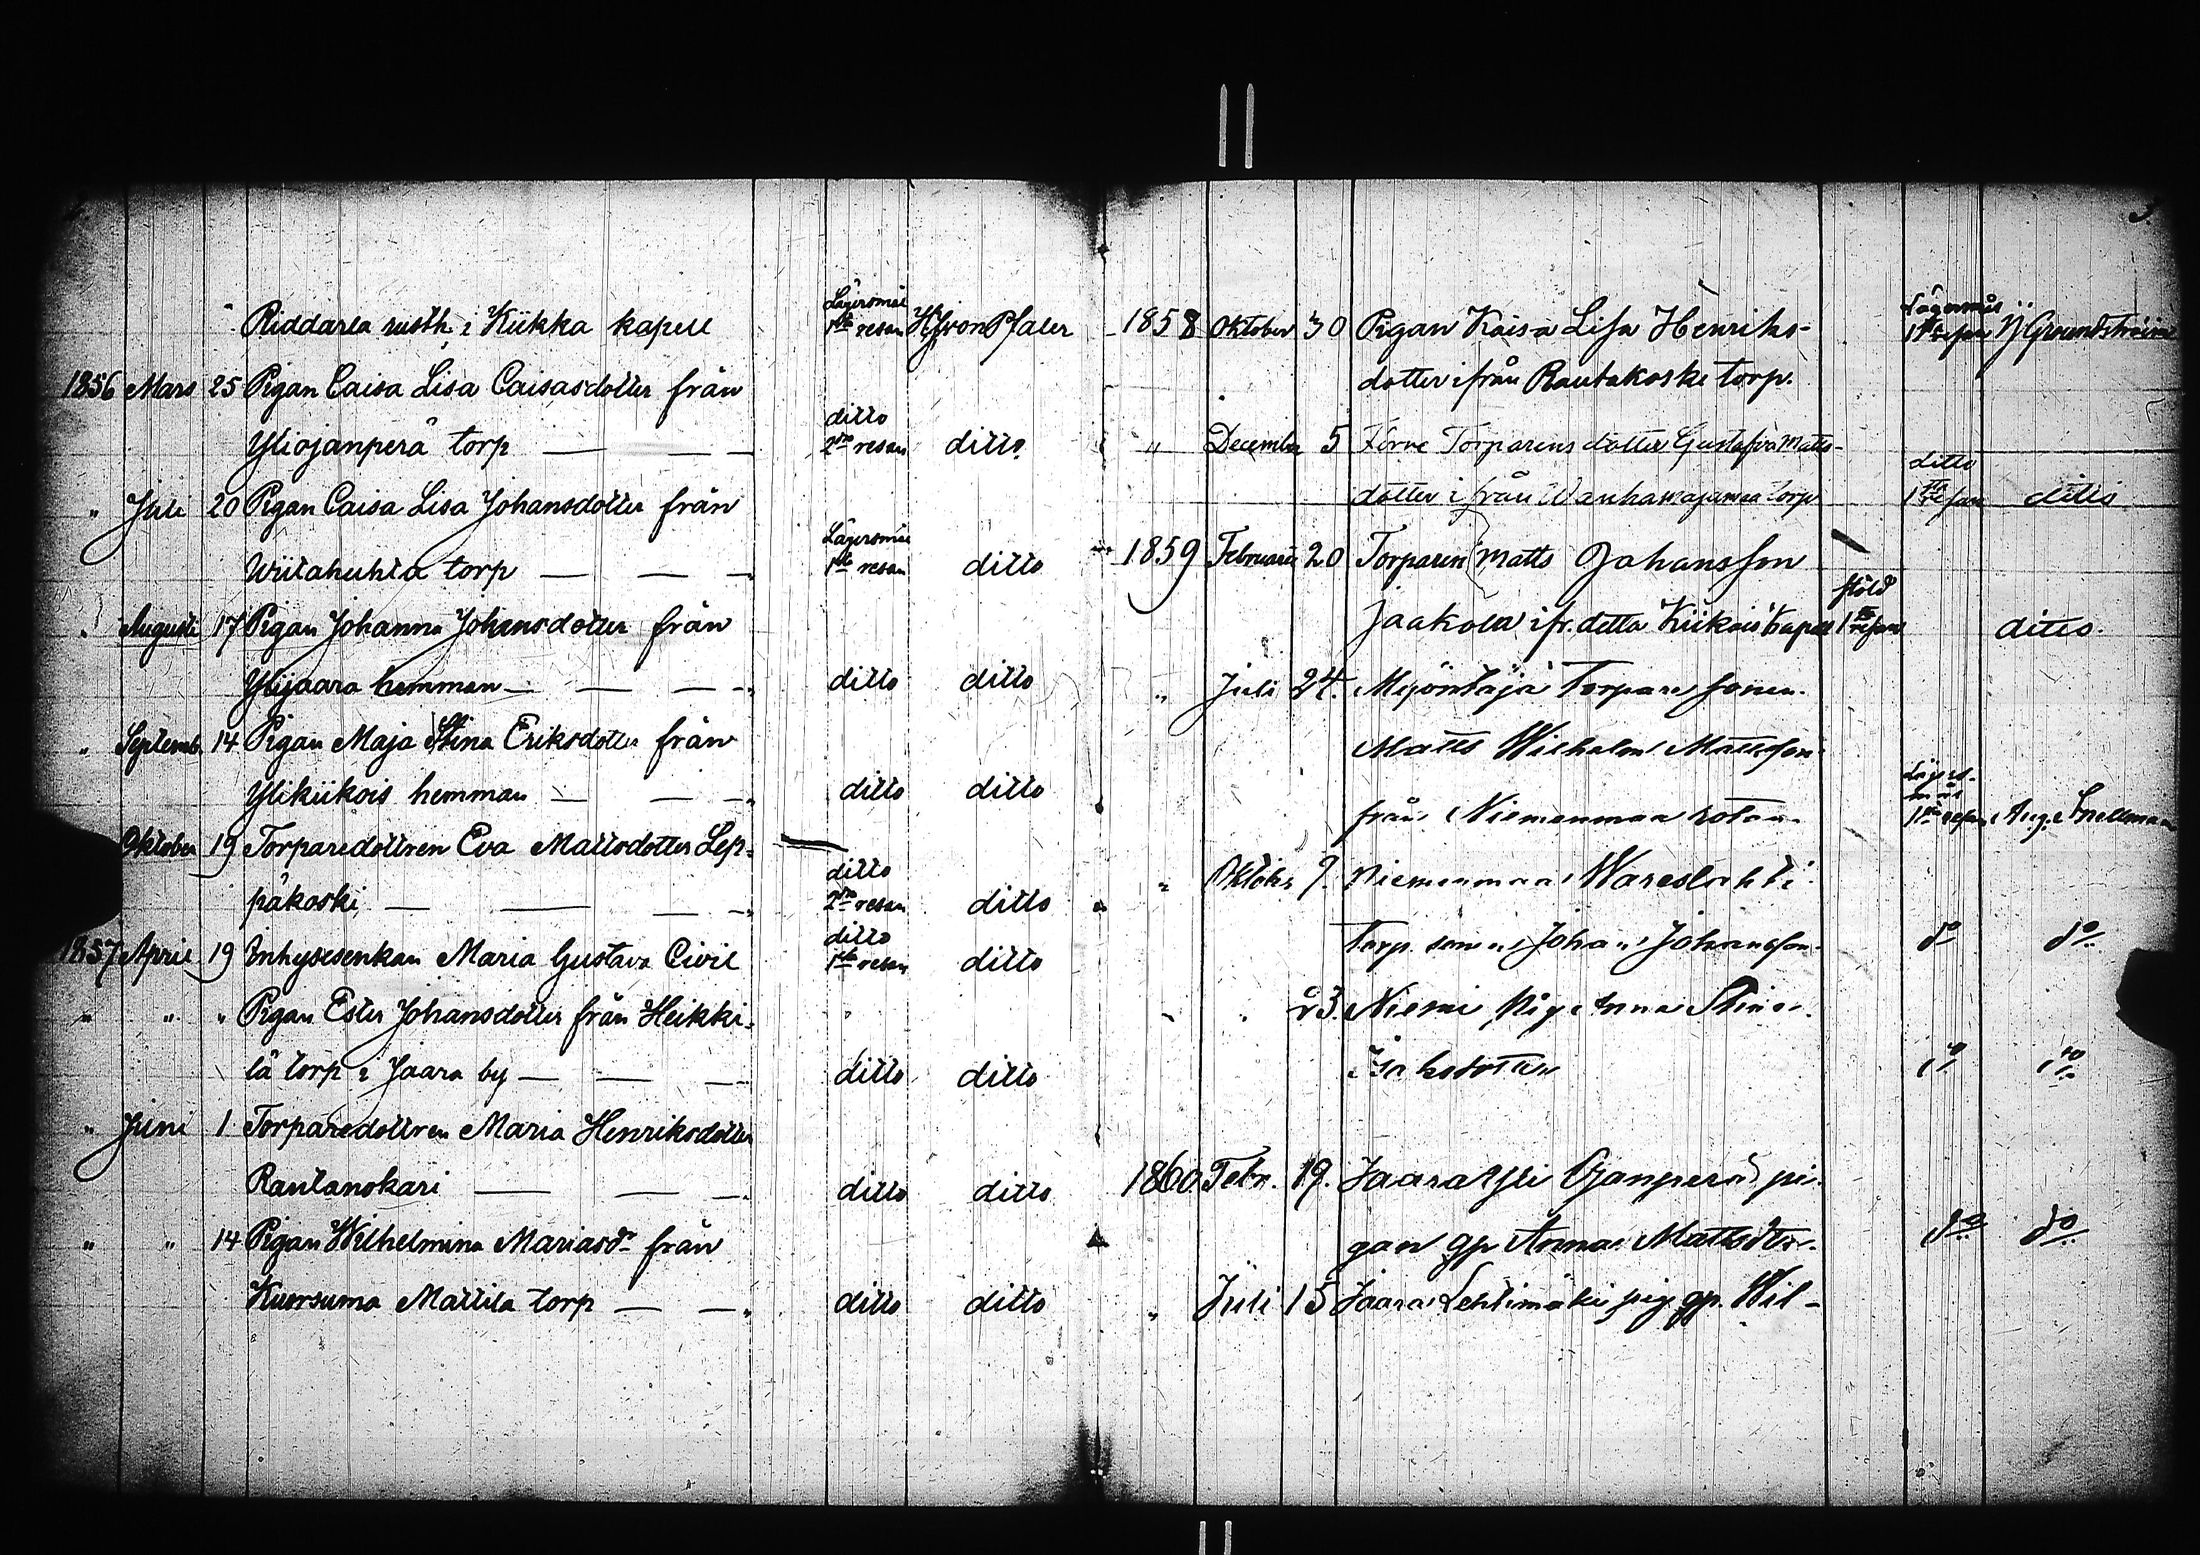 Riddarla rusth. i Kiikka kapell Lägersmål 1sta resan Hj von Pfaler
1856 Mars 25 Pigan Caisa Lisa Caisasdotter från
Yliojanperä torp — — — ditto 2dra resan ditto
" Juli 20 Pigan Caisa Lisa Johansdotter från
Wiitahuhta torp — — — Lägersmål 1sta resan ditto
" Augusti 17 Pigan Johanna Johansdotter från
Ylijaara hemman — — — ditto ditto
" Septemb. 14 Pigan Maja Stina Eriksdotter från
Ylikiikois hemman — — — ditto ditto
Oktober 19 Torparedottren Eva Mattsdotter Lep-
päkoski — — — ditto 2dra resan ditto
1857 April 19 Inhysesenkan Maria Gustava Civil ditto 1sta resan ditto
" " " Pigan Ester Johansdotter från Heikki-
lä torp i Jaara by — — — ditto ditto
" Juni 1 Torparedottren Maria Henriksdotter
Rautanokari — — — ditto ditto
" " 14 Pigan Wilhelmina Mariasdr från
Kuorsuma Mattila torp — — ditto ditto
3.
1858 Oktober 30 Pigan Kaisa Lisa Henriks- Lägersmål 1sta resan Grundström
dotter ifrån Rautakoski torp.
" December 5 Förre Torparens dotter Gustafva Matts-
dotter ifrån torp ditto 1sta resan ditto
1859 Februari 20 Torparen Matts Johansson
Jaakola ifr. detta Kiikois kapell stöld 1sta resan ditto.
" Juli 24. Torpare sonen
Matts Wilhelm Mattsson
från Niemenmaa rotan Lägersmål 1sta resan Aug. Snellman
" Oktober 9. Niemenmaa Wareslahti
Torp. sonen Johan Johansson do do
" " 23. Niemi Pig. Anna Stina
Isaksdotter do do
1860 Febr. 19. Jaara Yli Ojanperä pi-
gan gp Anna Mattsdtr. do do
" Juli 15 Jaara Lehtimäki pig gp. Wil-